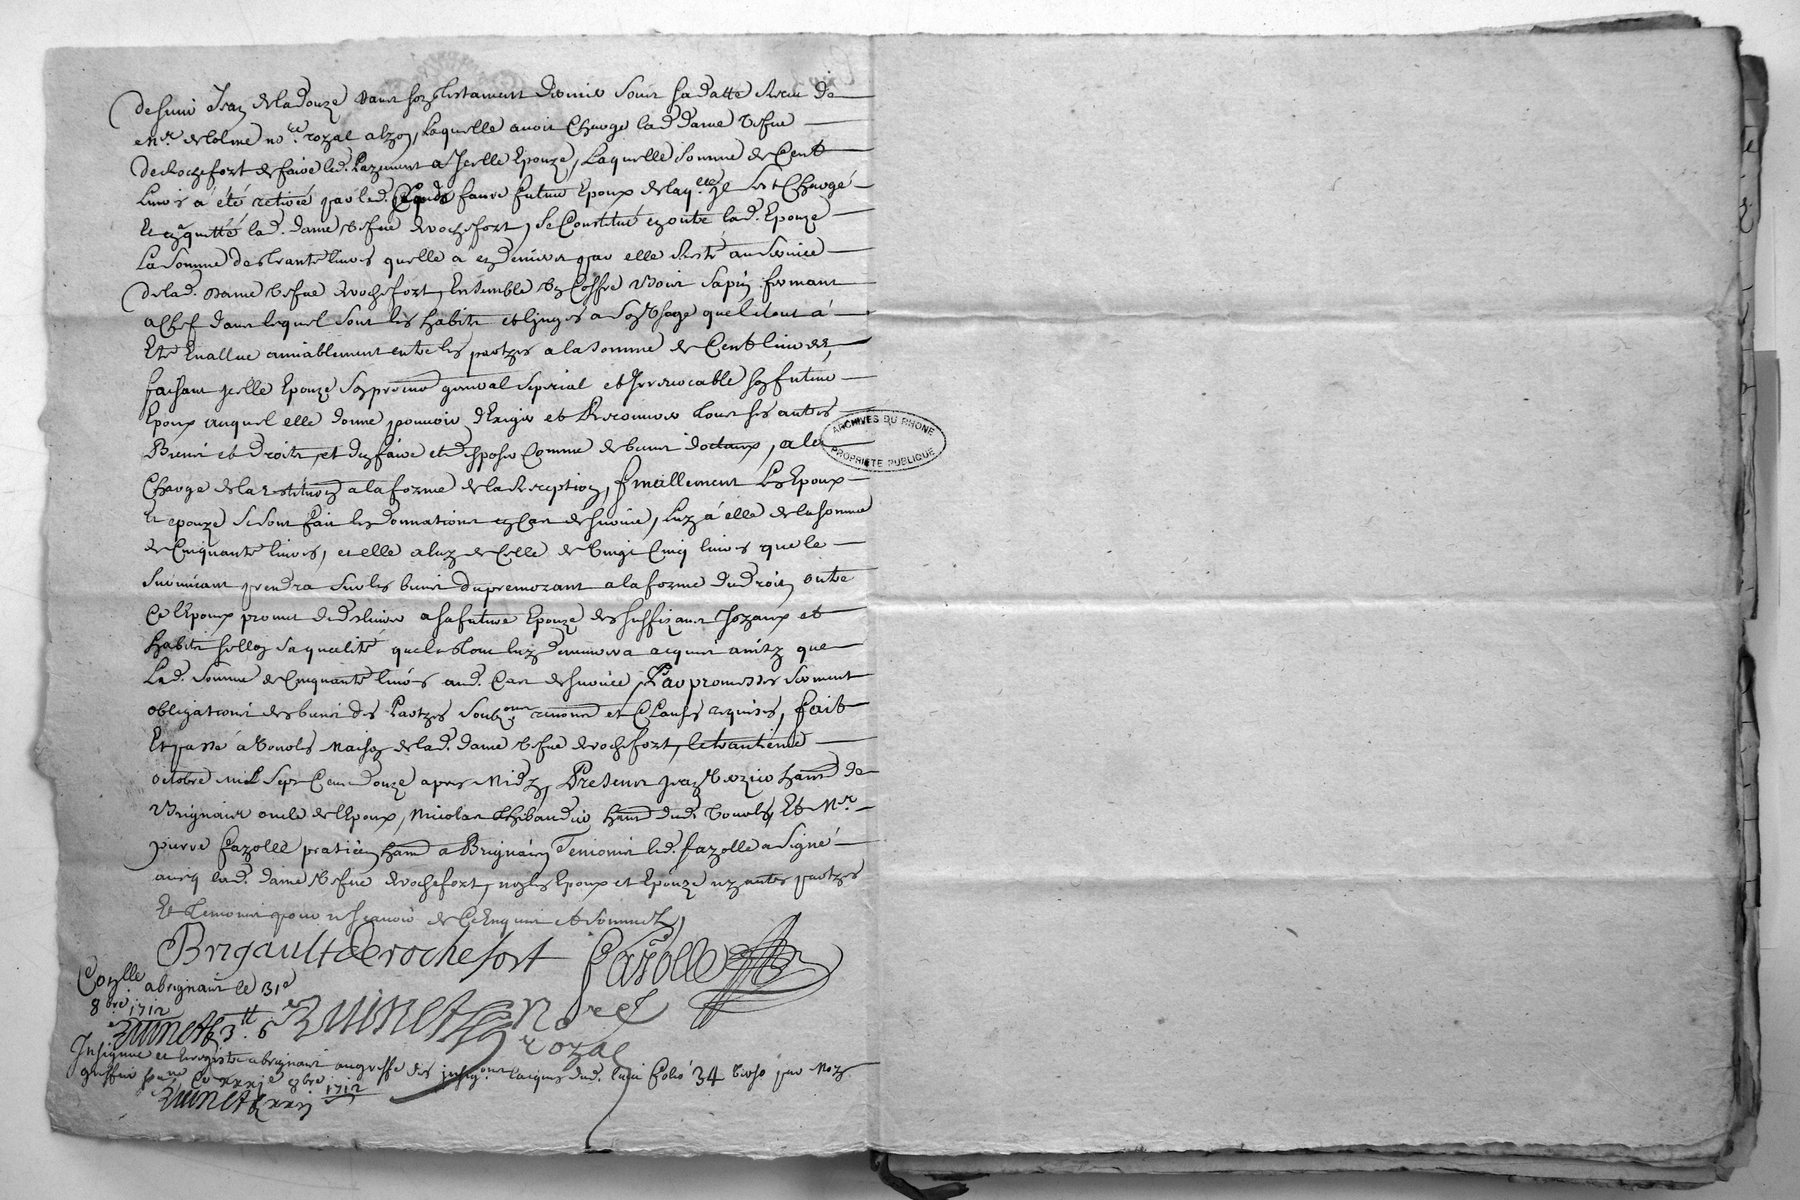 de feuu Jean de la douze dans son testament dernier sous sa datte Receu de
Me delolme nore royal alyon, Laquelle auoit Charge lad. dame Vefue
de Rochefort de faire led. Payement a Jcelle Epouze, Laquelle Somme de Cent
Liures a été retirée par led. Claude faure futur Epoux de laqlle il Sest Chargé
Et en quitté lad. dame Vefue de rochefort, Se Constitue en outre lad. Epouze
La Somme de trante liures quelle a en deniers par elle Resté au Seruice
de lad. Dame Vefue de rochefort, Ensemble Vn Coffre Bois Sapin fermant
a Clef dans lequel Sont les habits et linges a Son Vsage quel tout a
Eté Eualué amiablement entre les partyes a la Somme de Cent liures,
faisant jcelle Epouze Son procureur general Special et Jrreuocable Son futur
Epoux auquel elle donne pouuoir d'Exiger et Recouurer tous ses autres
Biens et droits, et d'en faire et disposer Comme de biens dotaux, a la
Charge de la restituon a la forme de la Reception, finallement Les Epoux
et epouze Se Sont fait les donnations en Cas de Suruie, Luy a elle de la Somme
de Cinquante liures, et elle a luy de Celle de Vingt Cinq liures que le
Suruiuant prendra Sur les biens du premourant a la forme du droit, outre
Ce l'Epoux promet de deliurer a sa future Epouze des Suffizans Joyaux et
habits Sellon Sa qualité que le tout luy demeurera acquis ainsy que
Lad. Somme de Cinquante liures aud. Cas de Suruie, Par promesses Serment
obligations des biens des Partyes Soubons renonons et Clauses requises, fait
Et passé a Vourles Maison de lad. dame Vefue de rochefort, le trantieme
octobre mil Sept Cens douze apres Midy, Presens Jean Verzier habt de
Brignais oncle de l'Epoux, Nicolas Thibaudier habt dud. Vourles, Et Mr
pierre fazolle praticien habt a Brignais, Temoins led. fazolle a Signé
auecq lad. dame Vefue de rochefort, non les Epoux et Epouze ny autres partyes
Et temoins pour ne Scauoir de Ce Enquis et Sommez,
Brigault de rochefort Fazolle
Conllé a brignais le 31e
8bre 1712
Quinet 3tt 6
Quinet nore
royal
Insignué et Enregistré a brignais au greffe des insigons laiques dud. lieu folio 34 verso par Moy
greffier soune Ce xxxje 8bre 1712
Quinet xxxj
ARCHIVES DU RHONE
PROPRIETE PUBLIQUE